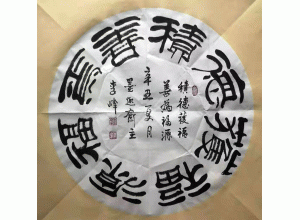 積德獲福
善為福源
積德獲福
善為福源
辛丑夏月
齋主
李峰